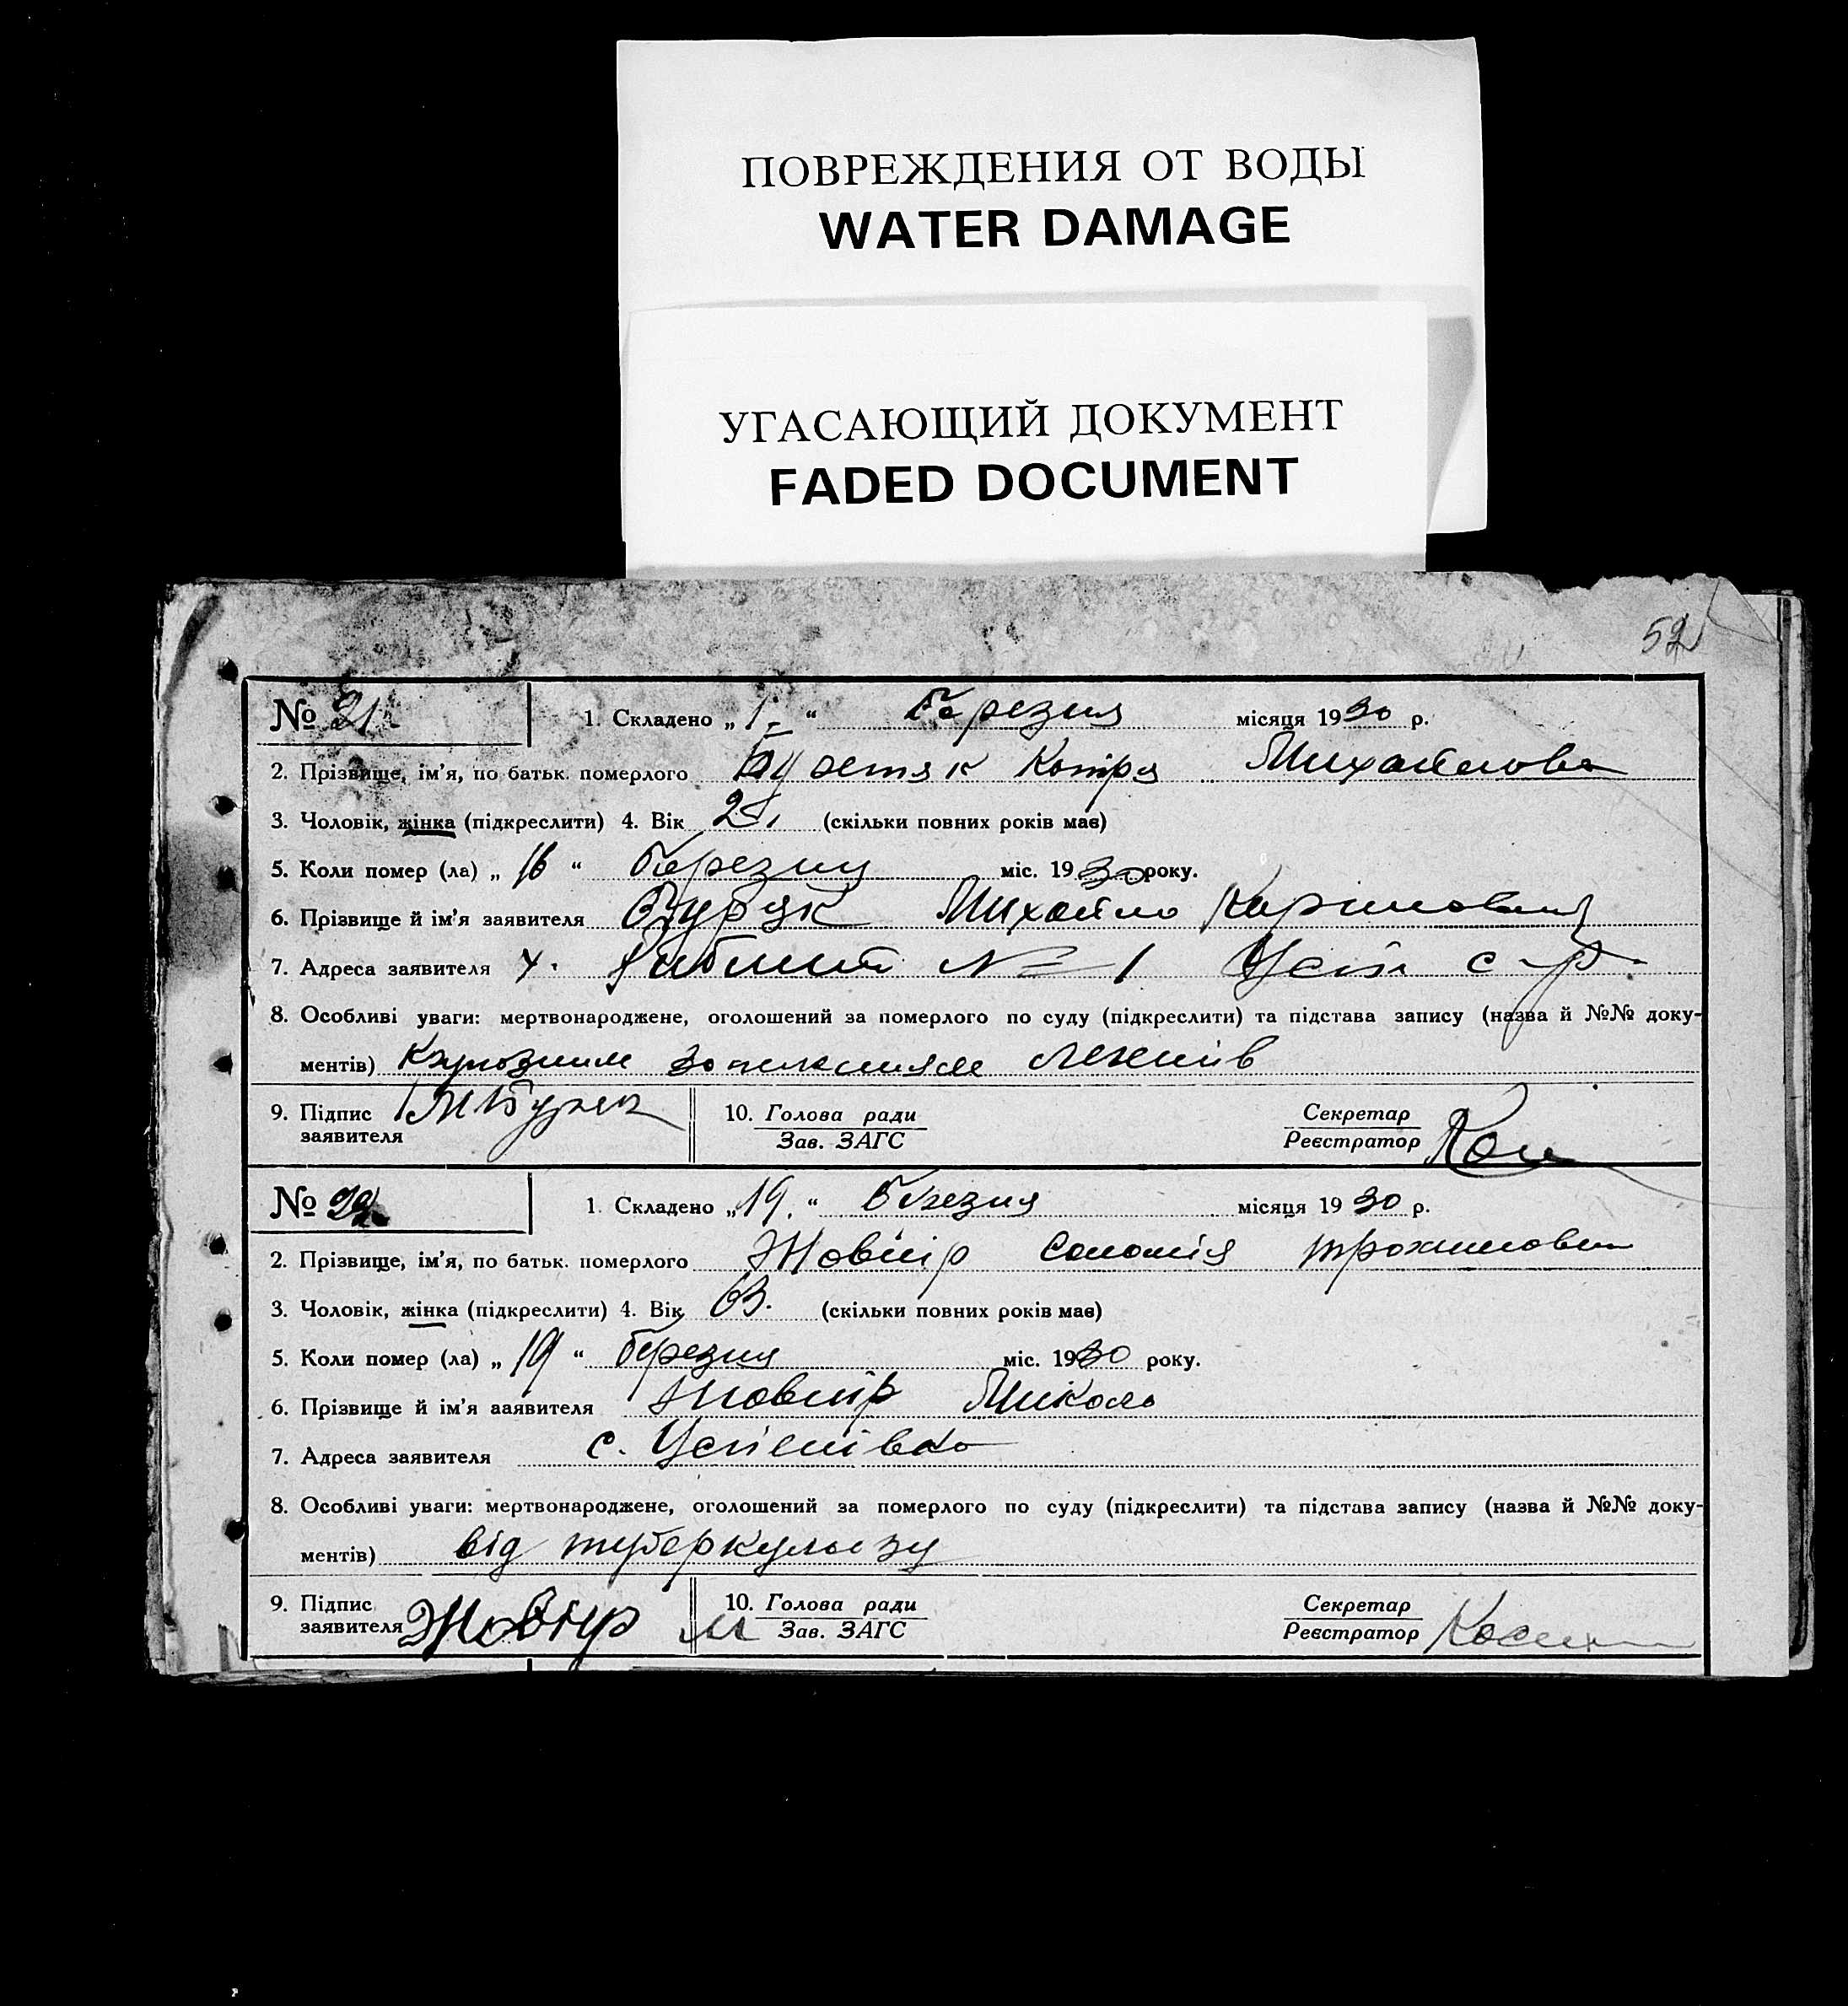 ПОВРЕЖДЕНИЯ ОТ ВОДЫ
WATER DAMAGE
УГАСАЮЩИЙ ДОКУМЕНТ
FADED DOCUMENT
52
№ 21. 1. Складено „ 1. “ Березня місяця 1930 р.
2. Прізвище, ім’я, по батьк. померлого Михайлова
3. Чоловік, жінка (підкреслити) 4. Вік (скільки повних років має)
5. Коли помер (ла) „ 16 “ березня міс. 1930 року.
6. Прізвище й ім’я заявителя Михайло
7. Адреса заявителя х. № 1 с-р.
8. Особливі уваги: мертвонароджене, оголошений за померлого по суду (підкреслити) та підстава запису (назва й №№ доку-
ментів) Крупозним легенів
9. Підпис заявителя 10. Голова ради Зав. ЗАГС Секретар Реєстратор
№ 22. 1. Складено „ 19. “ Березня місяця 1930 р.
2. Прізвище, ім’я, по батьк. померлого Жовнір Соломія трохимовна
3. Чоловік, жінка (підкреслити) 4. Вік 63. (скільки повних років має)
5. Коли помер (ла) „ 19 “ березня міс. 1930 року.
6. Прізвище й ім’я заявителя Жовнір Микола
7. Адреса заявителя с. Успенівка
8. Особливі уваги: мертвонароджене, оголошений за померлого по суду (підкреслити) та підстава запису (назва й №№ доку-
ментів) від туберкульозу
9. Підпис заявителя Жовнір М 10. Голова ради Зав. ЗАГС Секретар Реєстратор